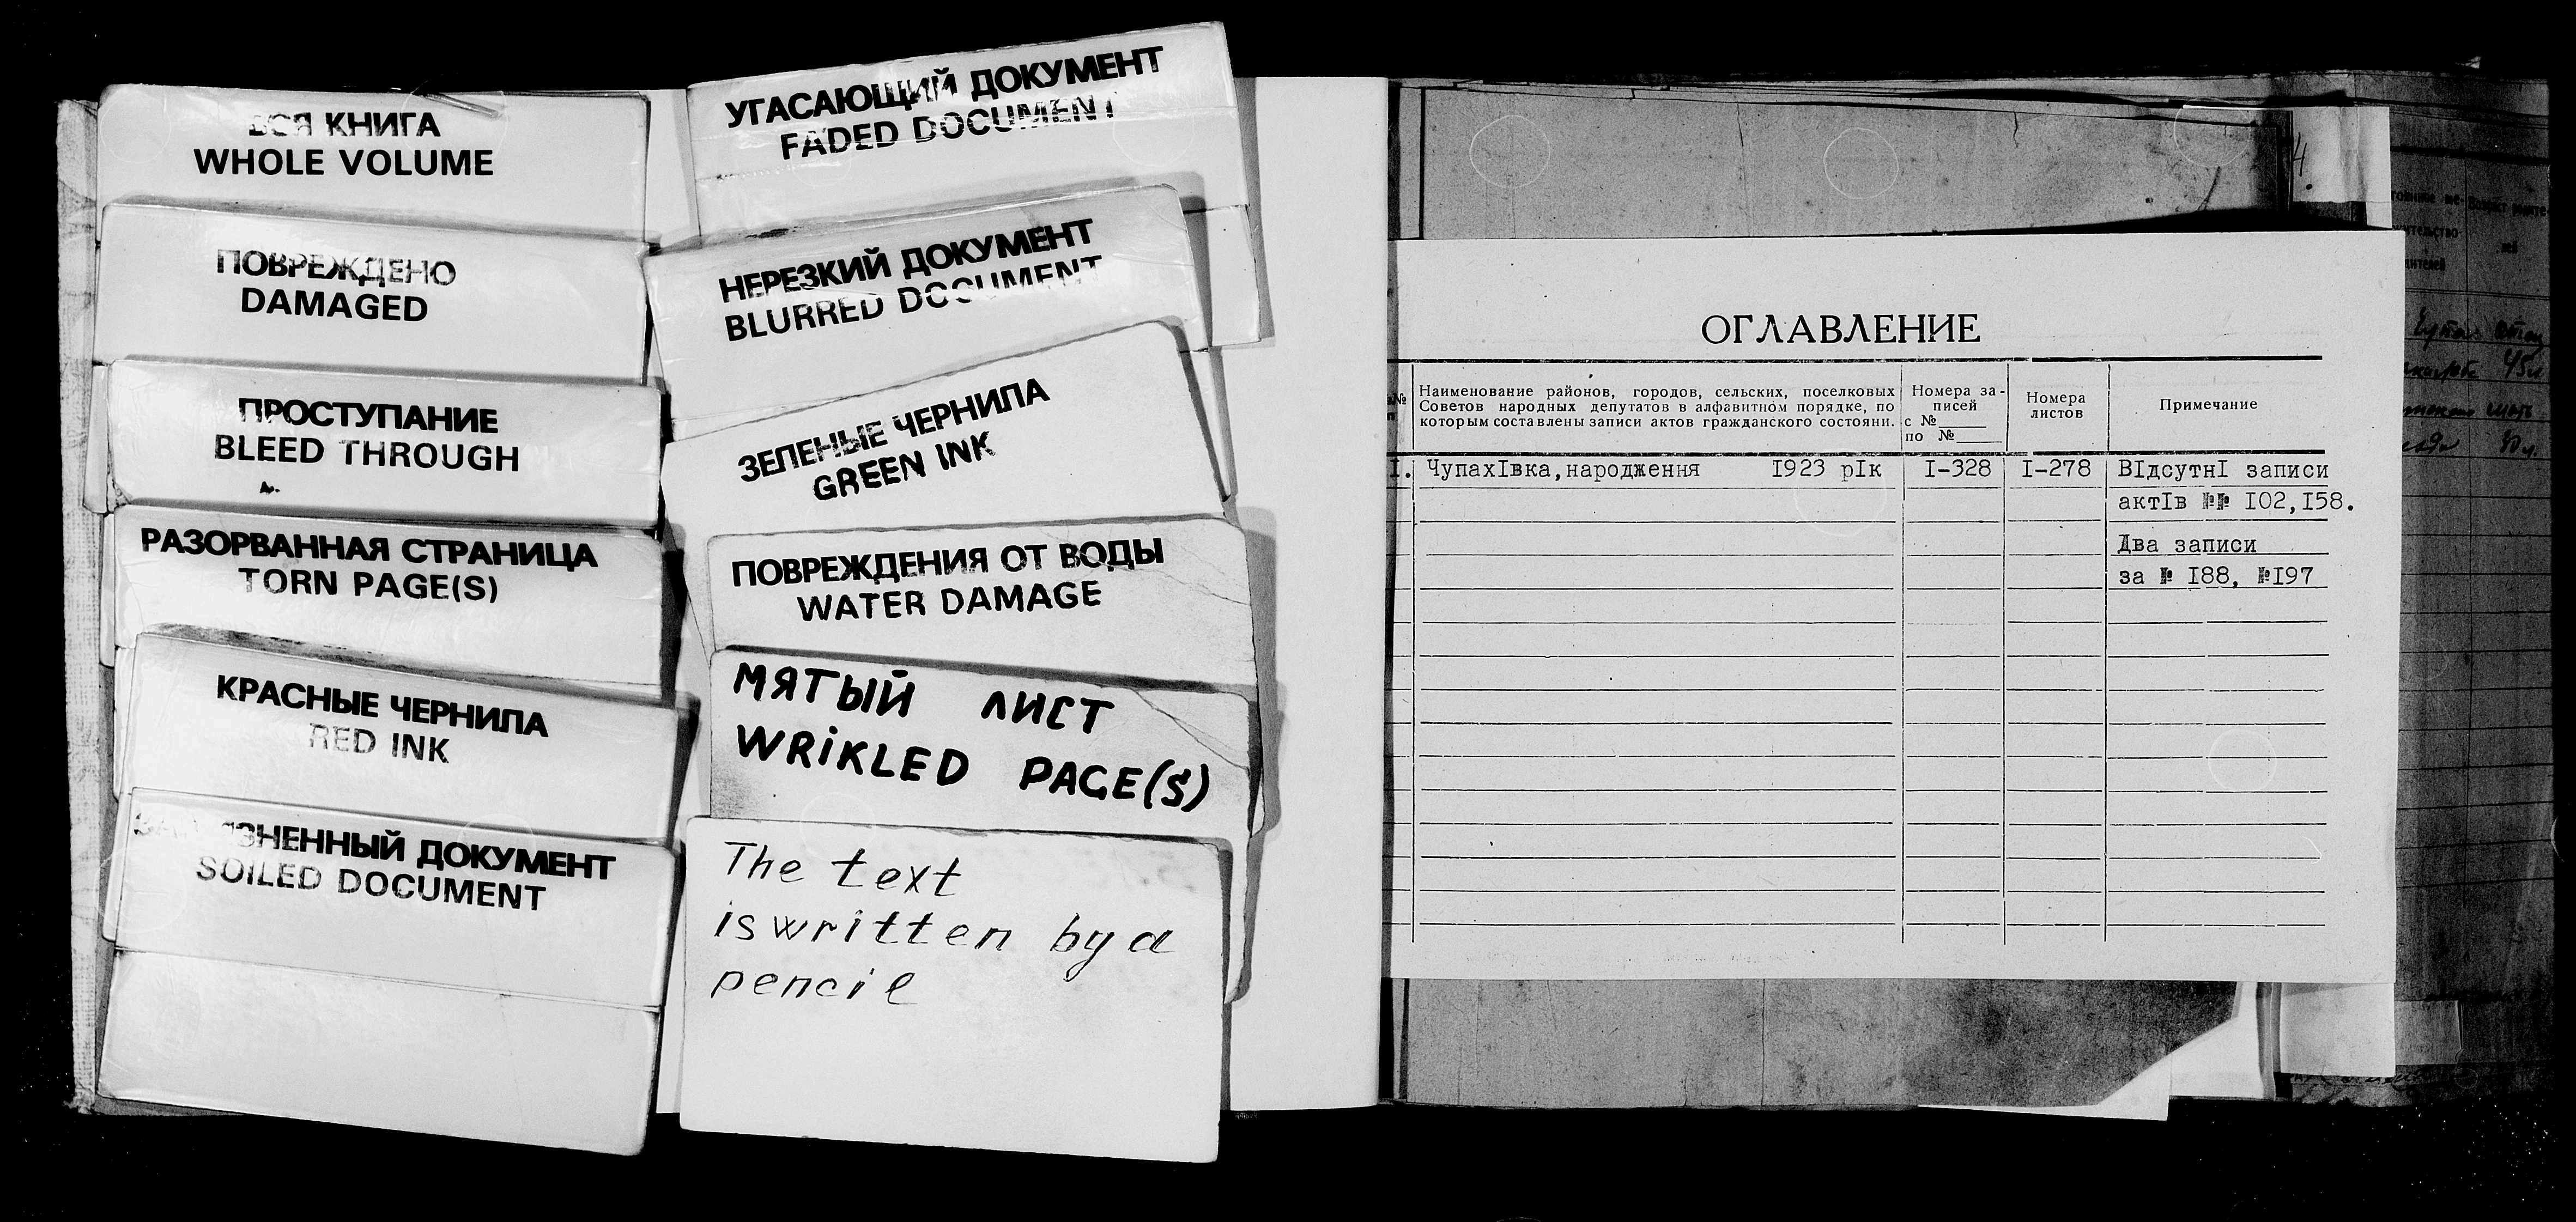 ВСЯ КНИГА
WHOLE VOLUME
ПОВРЕЖДЕНО
DAMAGED
ПРОСТУПАНИЕ
BLEED THROUGH
РАЗОРВАННАЯ СТРАНИЦА
TORN PAGE(S)
КРАСНЫЕ ЧЕРНИЛА
RED INK
ЗАГРЯЗНЕННЫЙ ДОКУМЕНТ
SOILED DOCUMENT
УГАСАЮЩИЙ ДОКУМЕНТ
FADED DOCUMENT
НЕРЕЗКИЙ ДОКУМЕНТ
BLURRED DOCUMENT
ЗЕЛЕНЫЕ ЧЕРНИЛА
GREEN INK
ПОВРЕЖДЕНИЯ ОТ ВОДЫ
WATER DAMAGE
МЯТЫЙ ЛИСТ
WRiKLED PAGE(S)
The text
is written by a
pencil
4.
ОГЛАВЛЕНИЕ
Наименование районов, городов, сельских, поселковых
Советов народных депутатов в алфавитном порядке, по
которым составлены записи актов гражданского состояни.
Номера за-
писей
с №
по №
Номера
листов
Примечание
I. ЧупахIвка,народження I923 рIк I-328 I-278 ВIдсутнI записи
актIв №№ I02,I58.
Два записи
за № I88, №I97